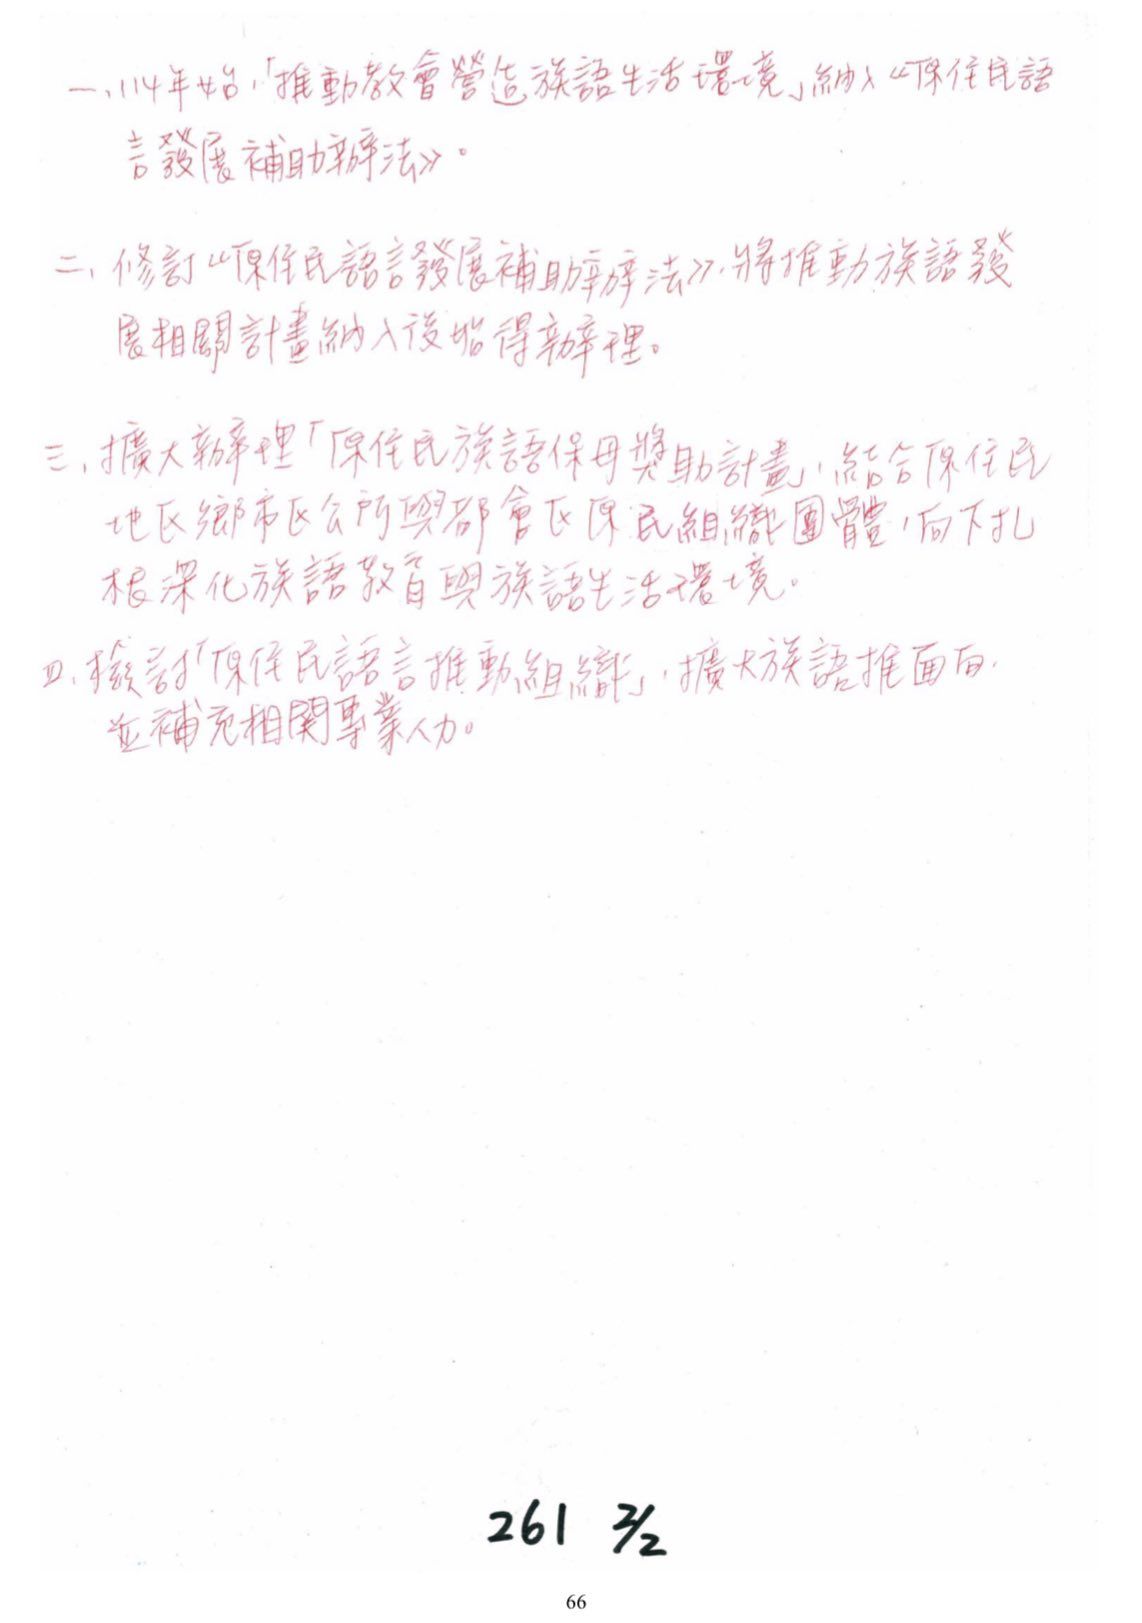 一、114年始，「推動教會營造族語生活環境」納入《原住民語
言發展補助辦法》。
二、修訂《原住民語言發展補助辦法》，將推動族語發
展相關計畫納入後始得辦理。
三、擴大辦理「原住民族語保母獎助計畫」，結合原住民
地区鄉市区公所與都會区原民組織團體，向下扎
根深化族語教育與族語生活環境。
四、檢討「原住民語言推動組織」，擴大族語推面向，
並補充相関專業人力。
261 2/2
66